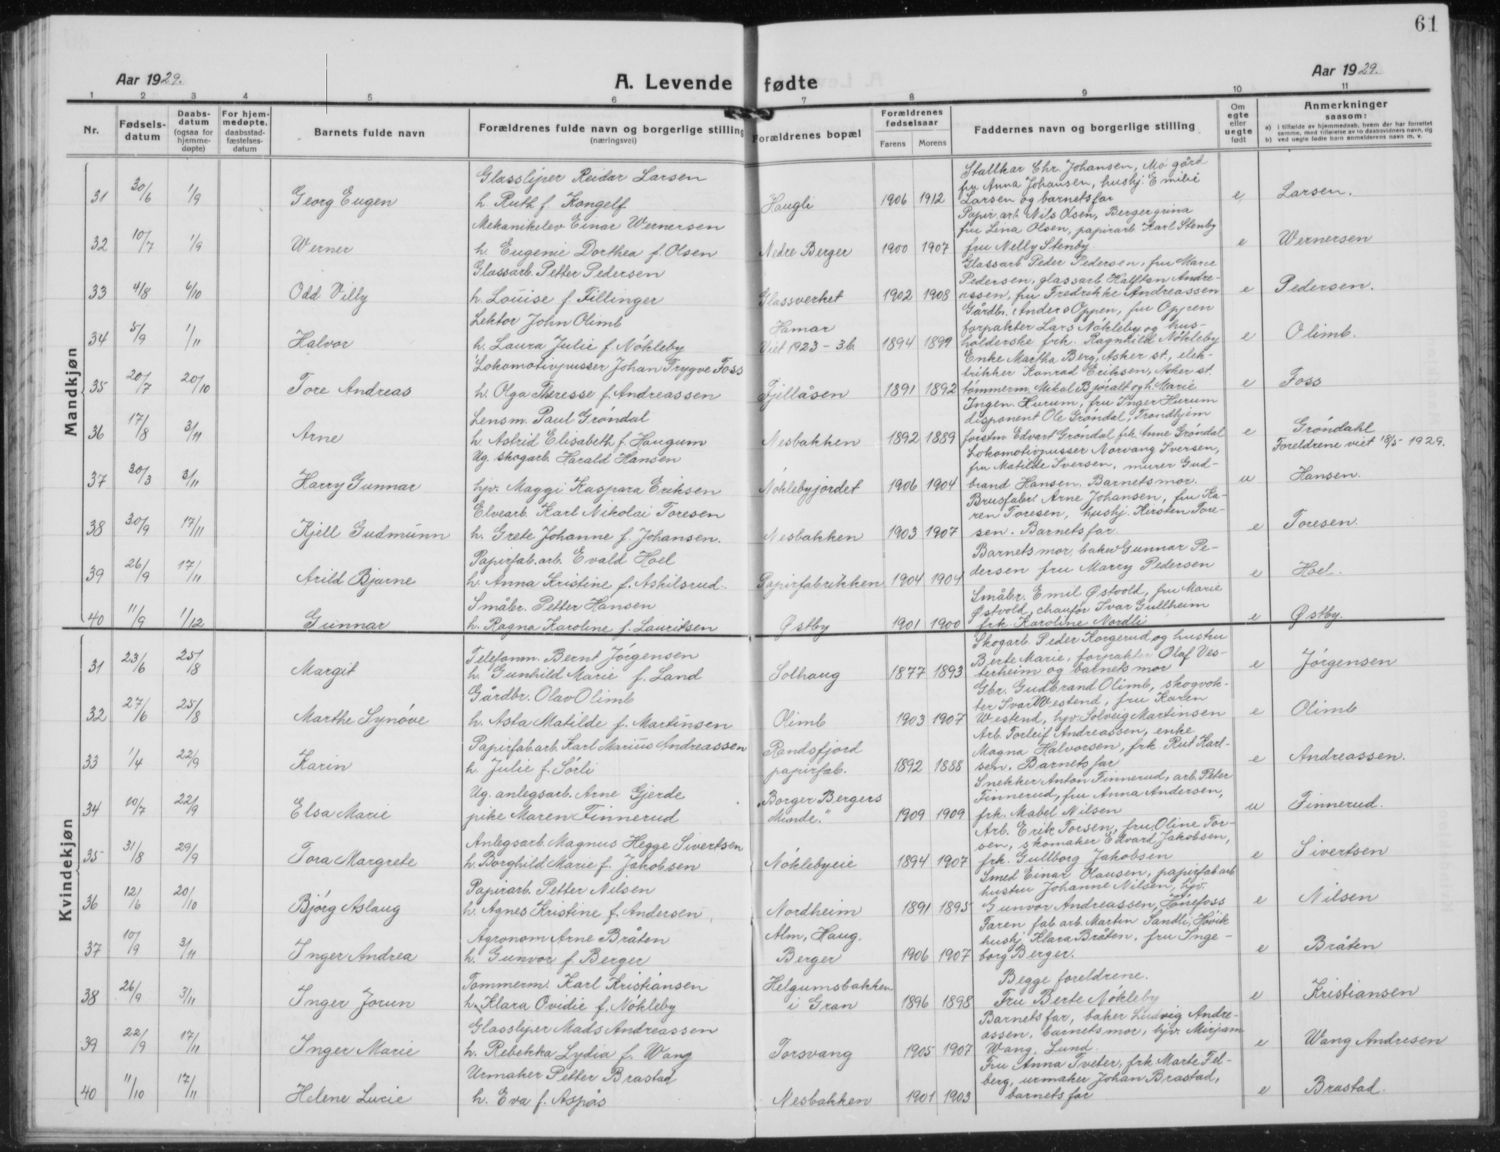 61
Aar 1929.
A. Levende fødte
Aar 1929.
1 2 3 4 5 6 7 8 9 10 11
Nr.
Fødsels-datum
Daabs-datum (ogsaa for hjemme-døpte)
For hjem-medøpte. daabsstad-fæstelses-datum
Barnets fulde navn
Forældrenes fulde navn og borgerlige stilling (næringsvei)
Forældrenes bopæl
Forældrenes fødselsaar
Farens Morens
Faddernes navn og borgerlige stilling
Om egte eller uegte født
Anmerkninger saasom:
a) i tilfælde av hjemmedaab, hvem der har forrettet samme, med tilføielse av to daabsvidners navn, og
b) ved uegte fødte barn anmelderens navn m. v.
Mandkjøn
31 30/6 1/9 Georg Eugen
Glassliper Reidar Larsen
h. Ruth f. Kongelf
Haugli 1906 1912
Stallkar Chr. Johansen, Mo gård
fru Anna Johansen, hushj. Emilie
Larsen og barnets far
e Larsen.
32 10/7 1/9 Werner
Mekanikelev Einar Wernersen
h. Eugenie Dorthea f. Olsen
Nedre Berger 1900 1907
Papir.arb. Nils Olsen, Bergergrina
fru Lina Olsen, papirarb. Karl Stenby
fru Nelly Stenby
e Wernersen
33 4/8 6/10 Odd Villy
Glassarb. Petter Pedersen
h. Louise f. Fillinger
Glassverket 1902 1908
Glassarb Peder Pedersen, fru Marie
Pedersen, glassarb Halften Andre-
assen, fru Fredrikke Andreassen
e Pedersen.
34 5/9 1/11 Halvor
Lektor John Olimb
h. Laura Julie f. Nökleby
Hamar
Viet 1923 - 36. 1894 1899
Gårdbr. Anders Oppen, fru Oppen
forpakter Lars Nökleby og hus-
holderske frk. Ragnhild Nökleby
e Olimb.
35 20/7 20/10 Tore Andreas
Lokomotivpusser Johan Trygve Foss
h. Olga Theresse f. Andreassen
Fjellåsen 1891 1892
Enke Martha Berg, Asker st., elek-
trikker Konrad Eriksen, Asker st.
tømmerm. Mikal Björalt og h. Marie
e Foss
36 17/8 3/11 Arne
Lensm. Paul Gröndal
h. Astrid Elisabeth f. Haugum
Nesbakken 1892 1889
Ingen. Hurum, fru Inger Hurum
disponent Ole Gröndal, Trondhjem
forstm Edvart Gröndal frk. Anne Gröndal
e Gröndahl
Foreldrene viet 18/5 - 1929.
37 30/3 3/11 Harry Gunnar
Ug. skogarb. Harald Hansen
hjv. Maggi Kaspara Eriksen
Nöklebyjordet 1906 1904
Lokomotivpusser Norvang Iversen,
fru Matilde Iversen, murer Gud-
brand Hansen. Barnets mor.
u Hansen.
38 30/9 17/11 Kjell Gudmunn
Elvearb. Karl Nikolai Toresen
h. Grete Johanne f. Johansen.
Nesbakken 1903 1907
Brusfabr. Arne Johansen, fru Ka-
ren Toresen, hushj. Kersten Tore-
sen. Barnets far
e Toresen.
39 26/9 17/11 Arild Bjarne
Papirfab.arb. Evald Hoel
h. Anna Kristine f. Askilsrud.
Papirfabrikken 1904 1904
Barnets mor, baker Gunnar Pe-
dersen fru Marry Pedersen
e Hoel.
40 11/9 1/12 Gunnar
Småbr. Petter Hansen
h. Ragna Karoline f. Lauritsen
Østby 1901 1900
Småbr. Emil Østvold, fru Marie
Østvold, chaufør Ivar Gullheim
frk Karoline Nordli
e Østby.
Kvindekjøn
31 23/6 25/8 Margit
Telefonm. Bernt Jørgensen
h. Gunhild Marie f. Land
Solhaug 1877 1893
Skogarb Peder Korgerud og hustru
Berte Marie, forpakter Olaf Ves-
terheim og barnets mor
e Jørgensen
32 27/6 25/8 Marthe Synöve
Gårdbr. Olav Olimb
h. Asta Matilde f. Martinsen
Olimb 1903 1907
Gbr. Gudbrand Olimb, skogvok-
ter Ivar Westend, fru Karen
Westend, hjv. Solveig Martinsen
e Olimb
33 1/4 22/9 Karin
Papirfabarb. Karl Marius Andreassen
h. Julie f. Sörli
Randsfjord
papirfab. 1892 1888
Arb. Torleif Andreassen, enke
Magna Halvorsen, frk. Rut Karl-
sen. Barnets far
e Andreassen.
34 10/7 22/9 Elsa Marie
Ug. anlegsarb. Arne Gjerde
pike Maren Finnerud
"Borger Bergers
Minde." 1909 1909
Snekker Anton Finnerud, arb. Peter
Finnerud, fru Anna Andersen,
frk. Mabel Nilsen
u Finnerud.
35 31/8 29/9 Tora Margrete
Anlegsarb. Magnus Hegge Sivertsen
h. Borghild Marie f. Jakobsen
Nöklebyeie 1894 1907
Arb. Erik Torsen, fru Oline Tor-
sen, skomaker Edvard Jakobsen,
frk. Gullborg Jakobsen
e Sivertsen
36 12/6 20/10 Björg Aslaug
Papirarb. Petter Nilsen
h. Agnes Kristine f. Andersen
Nordheim 1891 1895
Smed Einar Olausen, papirfab arb
hustru Johanne Nilsen, hjv.
Gunvor Andreassen, Hönefoss
e Nilsen
37 10/9 3/11 Inger Andrea
Agronom Arne Bråten
h. Gunvor f. Berger
Alm, Haug.
Berger 1906 1907
Faren fab arb Martin Sandli, Hövik
hushj Klara Bråten. fru Inge-
borg Berger.
e Bråten
38 26/9 3/11 Inger Jorun
Tommerm. Karl Kristiansen
h. Klara Ovidie f. Nökleby
Helgumsbakken
i Gran 1896 1898
Begge foreldrene.
Fru Berte Nökleby
e Kristiansen
39 22/9 17/11 Inger Marie
Glassliper Mads Andreassen
h. Rebekka Lydia f. Wang
Torsvang 1905 1907
Barnets far, baker Ludvig Andre-
assen, barnets mor, hjv. Mirjam
Wang. Lund.
e Wang Andresen
40 11/10 17/11 Helene Lucie
Urmaker Petter Brastad
h. Eva f. Aspös
Nesbakken 1901 1903
Fru Anna Tveter, frk Marte Fel-
berg, urmaker Johan Brastad,
barnets far
e Brastad.